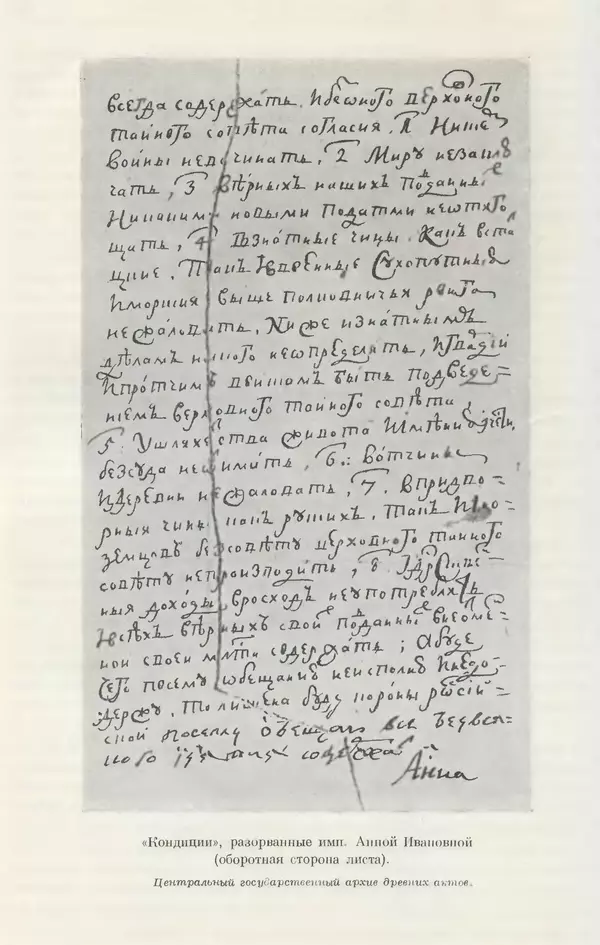 всегда содержать. И без оного верховного
тайного совета согласия. 1 Ни с кем
войны не всчинать, 2 Миру не заклю
чать, 3 верных наших подданных
никакими новыми податми не отяго
щать, 4 В знатные чины, как в стат
цкие, так и в военные сухопутные
и морския выше полковничья ранга
не жаловать, ниже к знатным
делам никого не определять, и гвардии
и протчим войскам быть под веде=
нием верховного тайного совета,
5. У шляхетства живота и имения и чести
без суда не отимать, 6. вотчины
и деревни не жаловать, 7. в придво=
рныя чины как руских, так и ино=
земцов без совету верховного тайного
совету не производить, 8 Государственные
ныя доходы в росход не употреблять
и всех верных своих подданных в неоме=
ной своей милости содержать; А буде
чего по сему обещанию не исполню и не до=
держу, то лишена буду короны росий=
ской По сему обещаю все без вся=
кого изъятия содержать
Анна
«Кондиции», разорванные имп. Анной Ивановной
(оборотная сторона листа).
Центральный государственный архив древних актов.